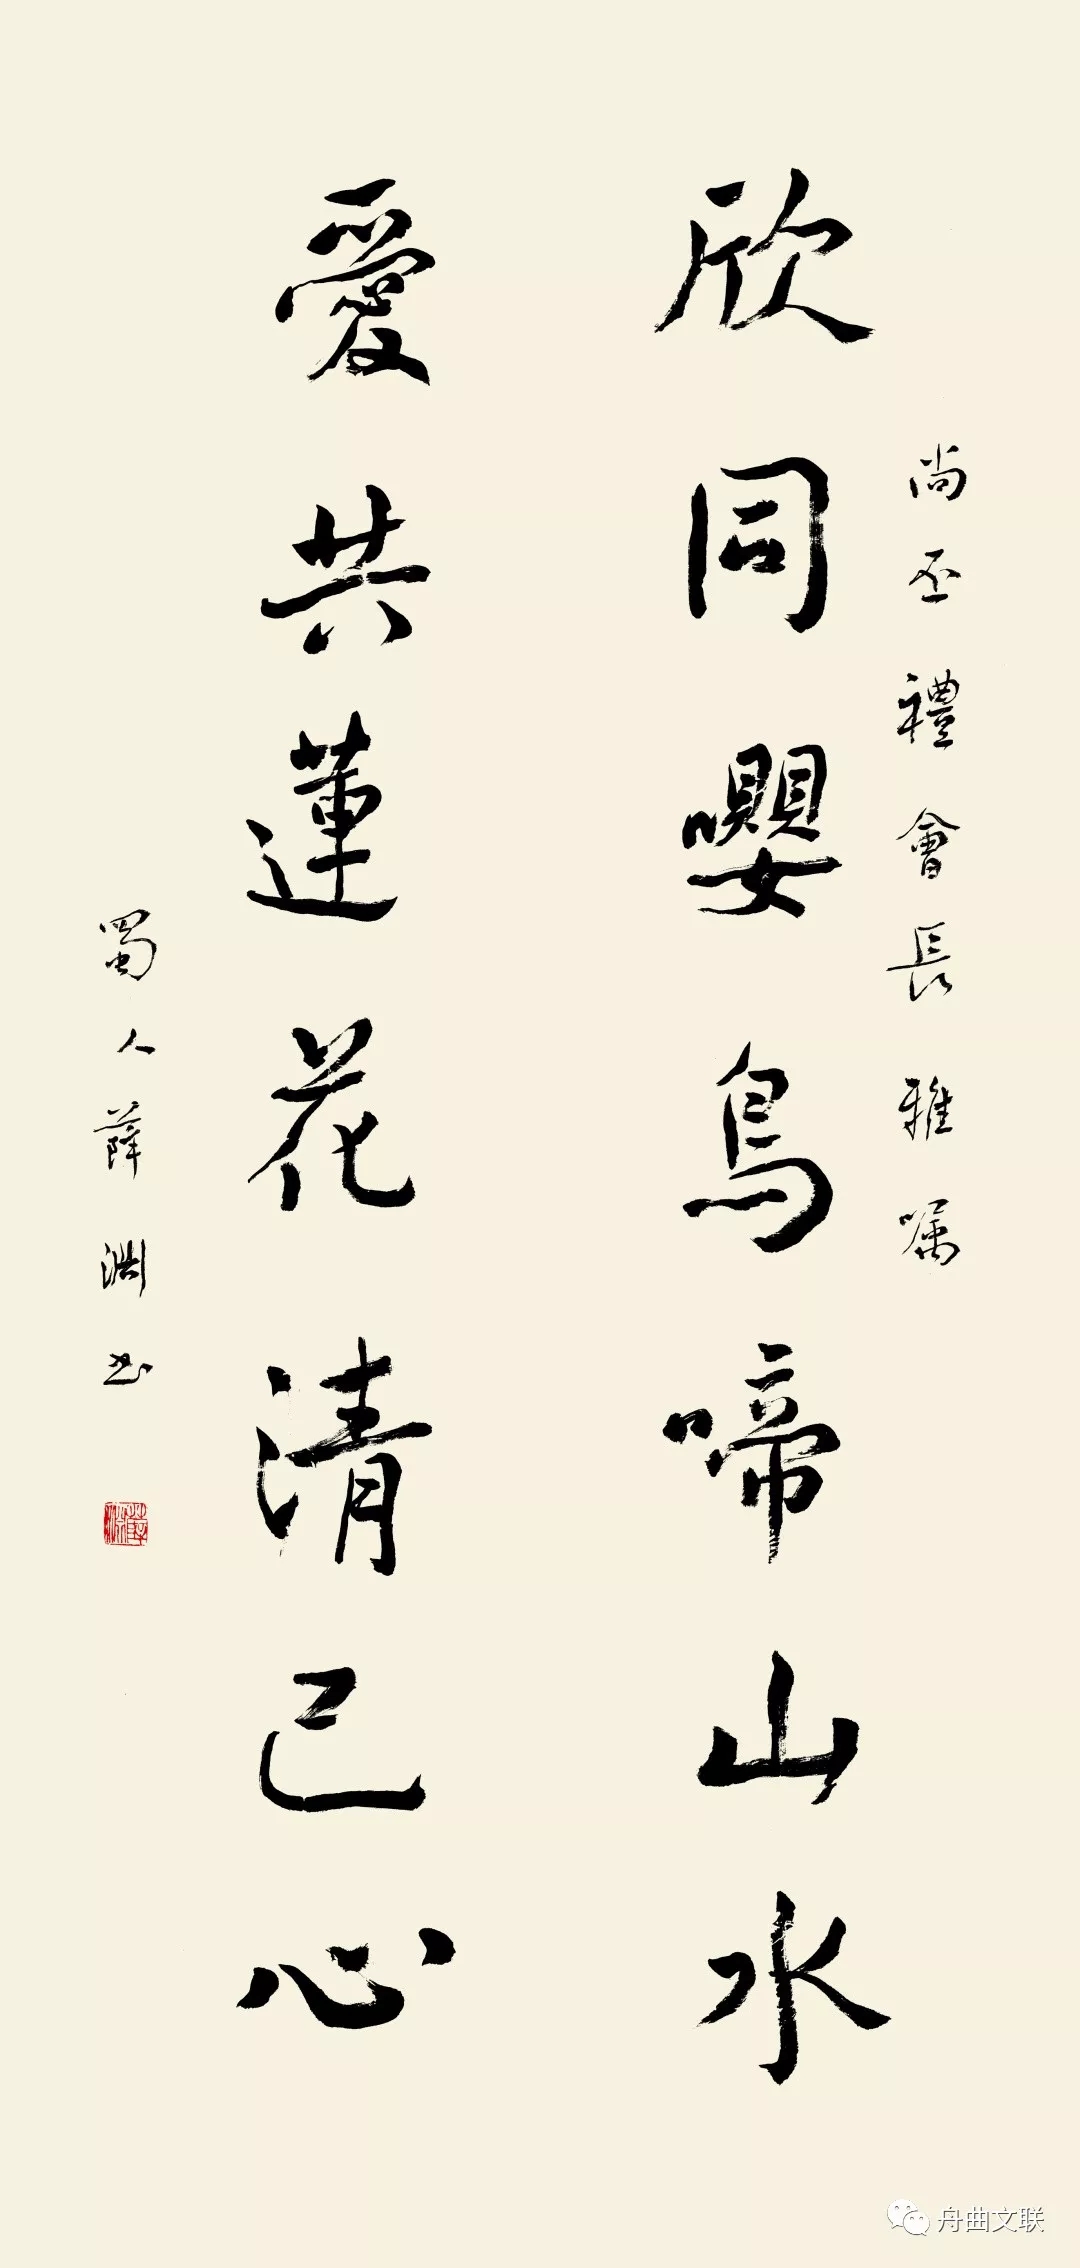 尚丕禮會長雅嘱
欣同嚶鳥啼山水
愛共蓮花清己心
蜀人薛淵书
舟曲文联